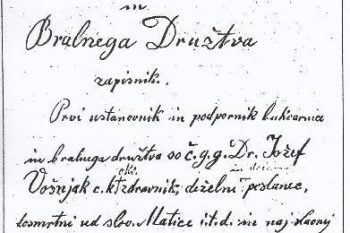 in
Bralnega Družtva
zapisnik.
Prvi ustanovnik in podpornik bukvarnice
in bralnega družtva so č.g.g. Dr. Jožef
Vošnjak c. k. zdravnik, deželni poslanec,
dosmrtni ud slov. Matice i.t.d. in